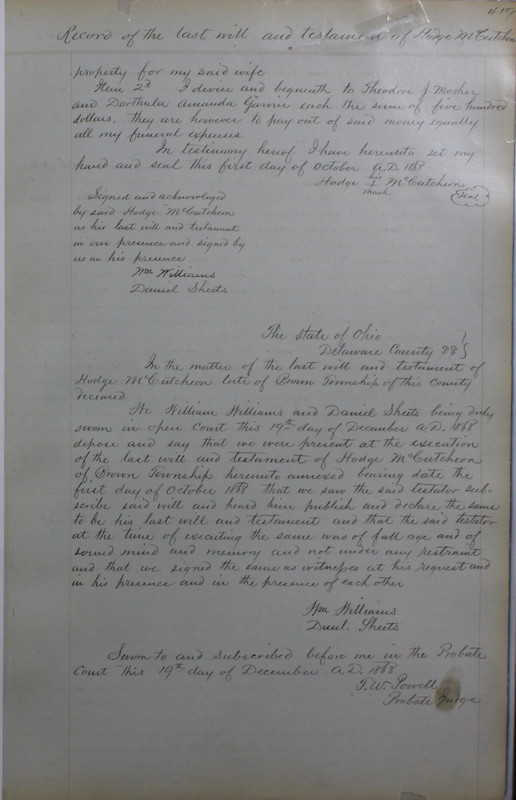 419
Record of the last will and testament of Hodge McCutchen
property for my said wife
Item 2d I devise and bequeath to Theodore J. Mosher
and Dorthula Amanda each the sum of five hundred
dollars. they are however to pay out of said money equally
all my funeral expenses
In testimony hereof I have hereunto set my
hand and seal this first day of October A.D. 1868
Hodge his X mark McCutcheon Seal
Signed and acknowledged
by said Hodge McCutcheon
as his last will and testament
in our presence and signed by
us in his presence
Wm Williams
Daniel Sheets
The State of Ohio
Delaware County SS }
In the matter of the last will and testament of
Hodge McCutcheon late of Brown Township of this County
deceased
We William Williams and Daniel Sheets being duly
sworn in open Court this 19th day of December A.D. 1868
depose and say that we were present at the execution
of the last will and testament of Hodge McCutcheon
of Brown Township hereunto annexed bearing date the
first day of October 1868 that we saw the said testator sub-
scribe said will and heard him publish and declare the same
to be his last will and testament and that the said testator
at the time of executing the same was of full age and of
sound mind and memory and not under any restraint
and that we signed the same as witnesses at his request and
in his presence and in the presence of each other
Wm Williams
Danl. Sheets
Sworn to and subscribed before me in the Probate
Court this 19th day of December A.D. 1868
T.W. Powell
Probate Judge